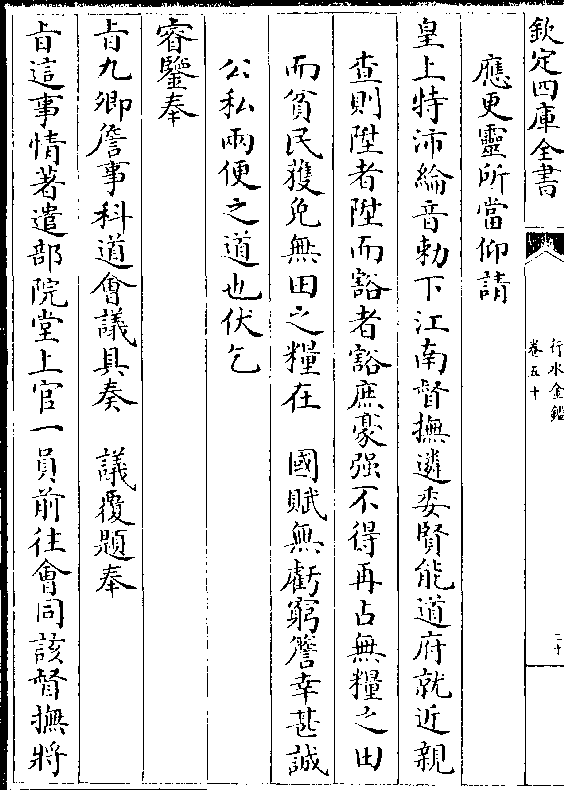 欽定四庫全書
行水金鑑
卷五十
二十
應更靈所當仰請
皇上特沛綸音勅下江南督撫遴委賢能道府就近親
查則陞者陞而豁者豁庶豪强不得再占無糧之田
而貧民獲免無田之糧在　國賦無虧窮簷幸甚誠
公私兩便之道也伏乞
睿鑒奉
㫖九卿詹事科道會議具奏　議覆題奉
㫖這事情著遣部院堂上官一員前往會同該督撫將